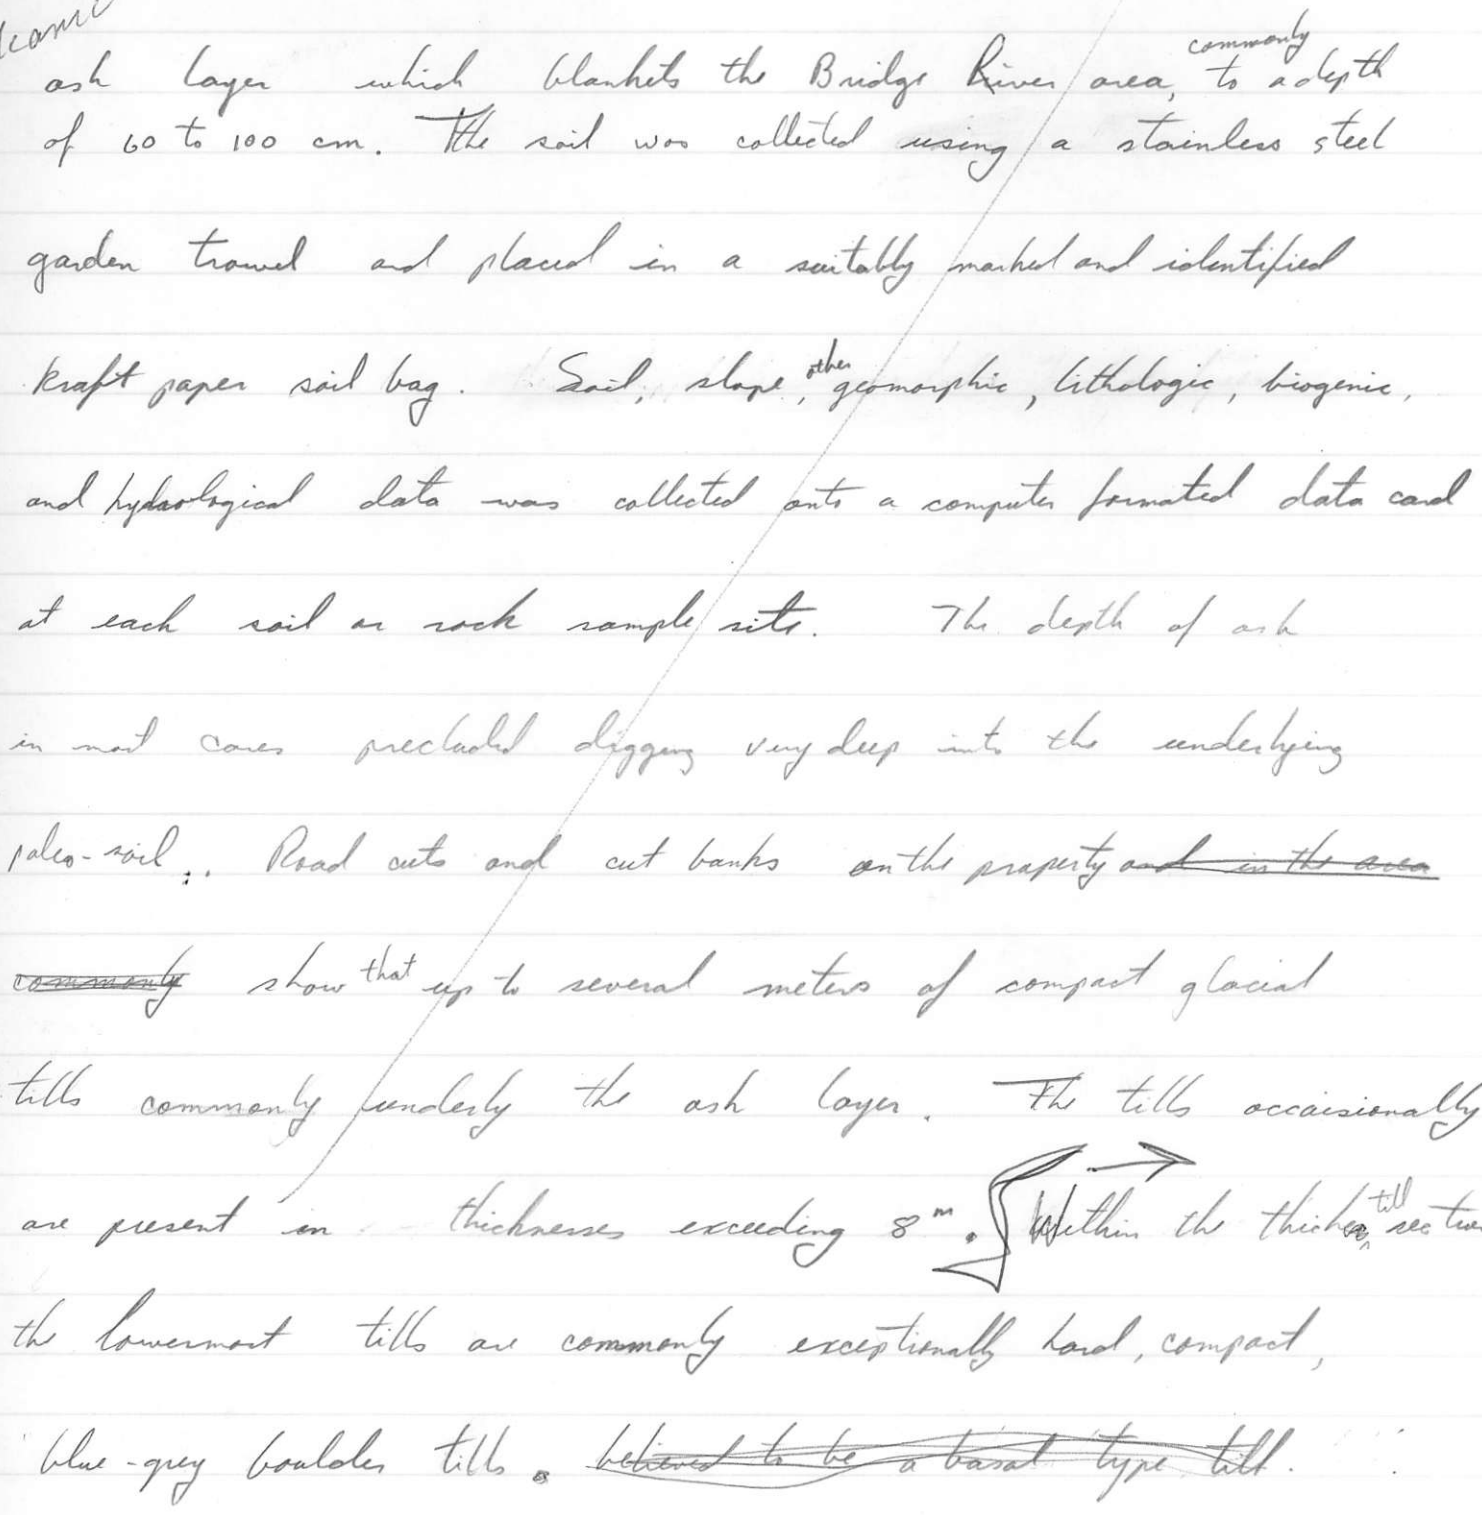 commonly
ash layer which blankets the Bridge River area, to a depth
of 60 to 100 cm. The soil was collected using a stainless steel
garden trowel and placed in a suitably marked and identified
kraft paper soil bag. Soil, slope, other geomorphic, lithologic, biogenic,
and hydrological data was collected onto a computer formated data card
at each soil or rock sample site. The depth of ash
in most cases precluded digging very deep into the underlying
paleo-soil. Road cuts and cut banks on the property and in the area
commonly show that up to several meters of compact glacial
tills commonly underly the ash layer. The tills occaisionally
are present in thicknesses exceeding 8 m. Within the thicker till section
the lowermost tills are commonly exceptionally hard, compact,
blue-grey boulder tills. believed to be a basal type till.